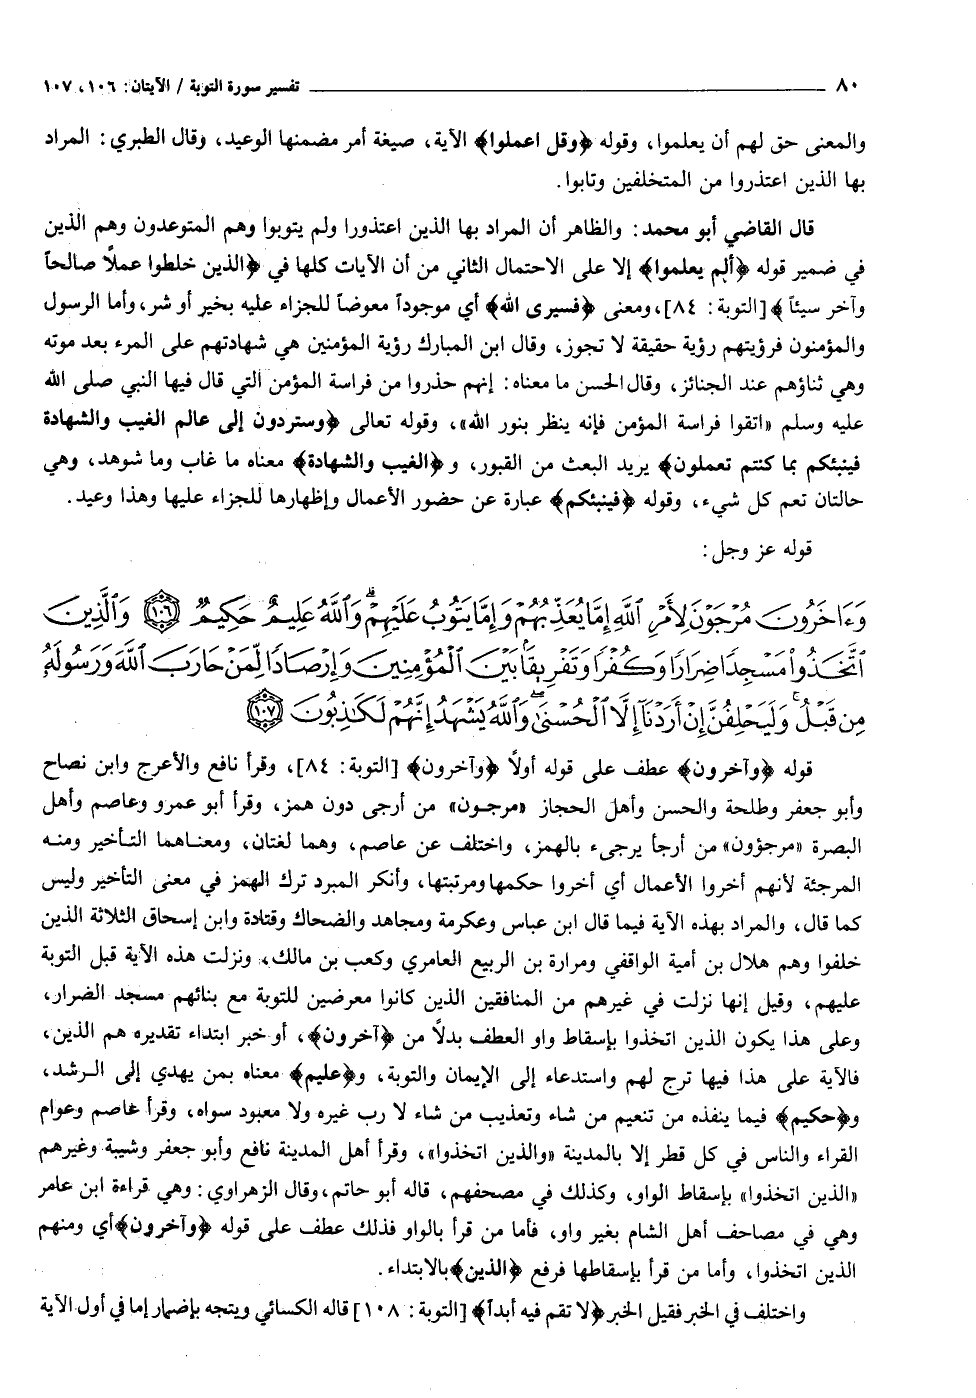 ٨٠ ــــــــــــــــــــ تفسير سورة التوبة / الآيتان: ١٠٦، ١٠٧
والمعنى حق لهم أن يعلموا، وقوله ﴿وقل اعملوا﴾ الآية، صيغة أمر مضمنها الوعيد، وقال الطبري: المراد
بها الذين اعتذروا من المتخلفين وتابوا.
قال القاضي أبو محمد: والظاهر أن المراد بها الذين اعتذورا ولم يتوبوا وهم المتوعدون وهم الذين
في ضمير قوله ﴿ألم يعلموا﴾ إلا على الاحتمال الثاني من أن الآيات كلها في ﴿الذين خلطوا عملاً صالحاً
وآخر سيئاً﴾ [التوبة: ٨٤]، ومعنى ﴿فسيرى الله﴾ أي موجوداً معوضاً للجزاء عليه بخير أو شر، وأما الرسول
والمؤمنون فرؤيتهم رؤية حقيقة لا تجوز، وقال ابن المبارك رؤية المؤمنين هي شهادتهم على المرء بعد موته
وهي ثناؤهم عند الجنائز، وقال الحسن ما معناه: إنهم حذروا من فراسة المؤمن التي قال فيها النبي صلى الله
عليه وسلم «اتقوا فراسة المؤمن فإنه ينظر بنور الله»، وقوله تعالى ﴿وستردون إلى عالم الغيب والشهادة
فينبئكم بما كنتم تعملون﴾ يريد البعث من القبور، و﴿الغيب والشهادة﴾ معناه ما غاب وما شوهد، وهي
حالتان تعم كل شيء، وقوله ﴿فينبئكم﴾ عبارة عن حضور الأعمال وإظهارها للجزاء عليها وهذا وعيد.
قوله عز وجل:
وَءَاخَرُونَ مُرْجَوْنَ لِأَمْرِ ٱللَّهِ إِمَّا يُعَذِّبُهُمْ وَإِمَّا يَتُوبُ عَلَيْهِمْ ۗ وَٱللَّهُ عَلِيمٌ حَكِيمٌ ﴿١٠٦﴾ وَٱلَّذِينَ
ٱتَّخَذُوا۟ مَسْجِدًا ضِرَارًا وَكُفْرًا وَتَفْرِيقًۢا بَيْنَ ٱلْمُؤْمِنِينَ وَإِرْصَادًا لِّمَنْ حَارَبَ ٱللَّهَ وَرَسُولَهُۥ
مِن قَبْلُ ۚ وَلَيَحْلِفُنَّ إِنْ أَرَدْنَآ إِلَّا ٱلْحُسْنَىٰ ۖ وَٱللَّهُ يَشْهَدُ إِنَّهُمْ لَكَـٰذِبُونَ ﴿١٠٧﴾
قوله ﴿وآخرون﴾ عطف على قوله أولاً ﴿وآخرون﴾ [التوبة: ٨٤]، وقرأ نافع والأعرج وابن نصاح
وأبو جعفر وطلحة والحسن وأهل الحجاز «مرجون» من أرجى دون همز، وقرأ أبو عمرو وعاصم وأهل
البصرة «مرجؤون» من أرجأ يرجىء بالهمز، واختلف عن عاصم، وهما لغتان، ومعناهما التأخير ومنه
المرجئة لأنهم أخروا الأعمال أي أخروا حكمها ومرتبتها، وأنكر المبرد ترك الهمز في معنى التأخير وليس
كما قال، والمراد بهذه الآية فيما قال ابن عباس وعكرمة ومجاهد والضحاك وقتادة وابن إسحاق الثلاثة الذين
خلفوا وهم هلال بن أمية الواقفي ومرارة بن الربيع العامري وكعب بن مالك، ونزلت هذه الآية قبل التوبة
عليهم، وقيل إنها نزلت في غيرهم من المنافقين الذين كانوا معرضين للتوبة مع بنائهم مسجد الضرار،
وعلى هذا يكون الذين اتخذوا بإسقاط واو العطف بدلاً من ﴿آخرون﴾، أو خبر ابتداء تقديره هم الذين،
فالآية على هذا فيها ترج لهم واستدعاء إلى الإيمان والتوبة، و﴿عليم﴾ معناه بمن يهدي إلى الرشد،
و﴿حكيم﴾ فيما ينفذه من تنعيم من شاء وتعذيب من شاء لا رب غيره ولا معبود سواه، وقرأ عاصم وعوام
القراء والناس في كل قطر إلا بالمدينة «والذين اتخذوا»، وقرأ أهل المدينة نافع وأبو جعفر وشيبة وغيرهم
«الذين اتخذوا» بإسقاط الواو، وكذلك في مصحفهم، قاله أبو حاتم، وقال الزهراوي: وهي قراءة ابن عامر
وهي في مصاحف أهل الشام بغير واو، فأما من قرأ بالواو فذلك عطف على قوله ﴿وآخرون﴾ أي ومنهم
الذين اتخذوا، وأما من قرأ بإسقاطها فرفع ﴿الذين﴾ بالابتداء.
واختلف في الخبر فقيل الخبر ﴿لا تقم فيه أبداً﴾ [التوبة: ١٠٨] قاله الكسائي ويتجه بإضمار إما في أول الآية